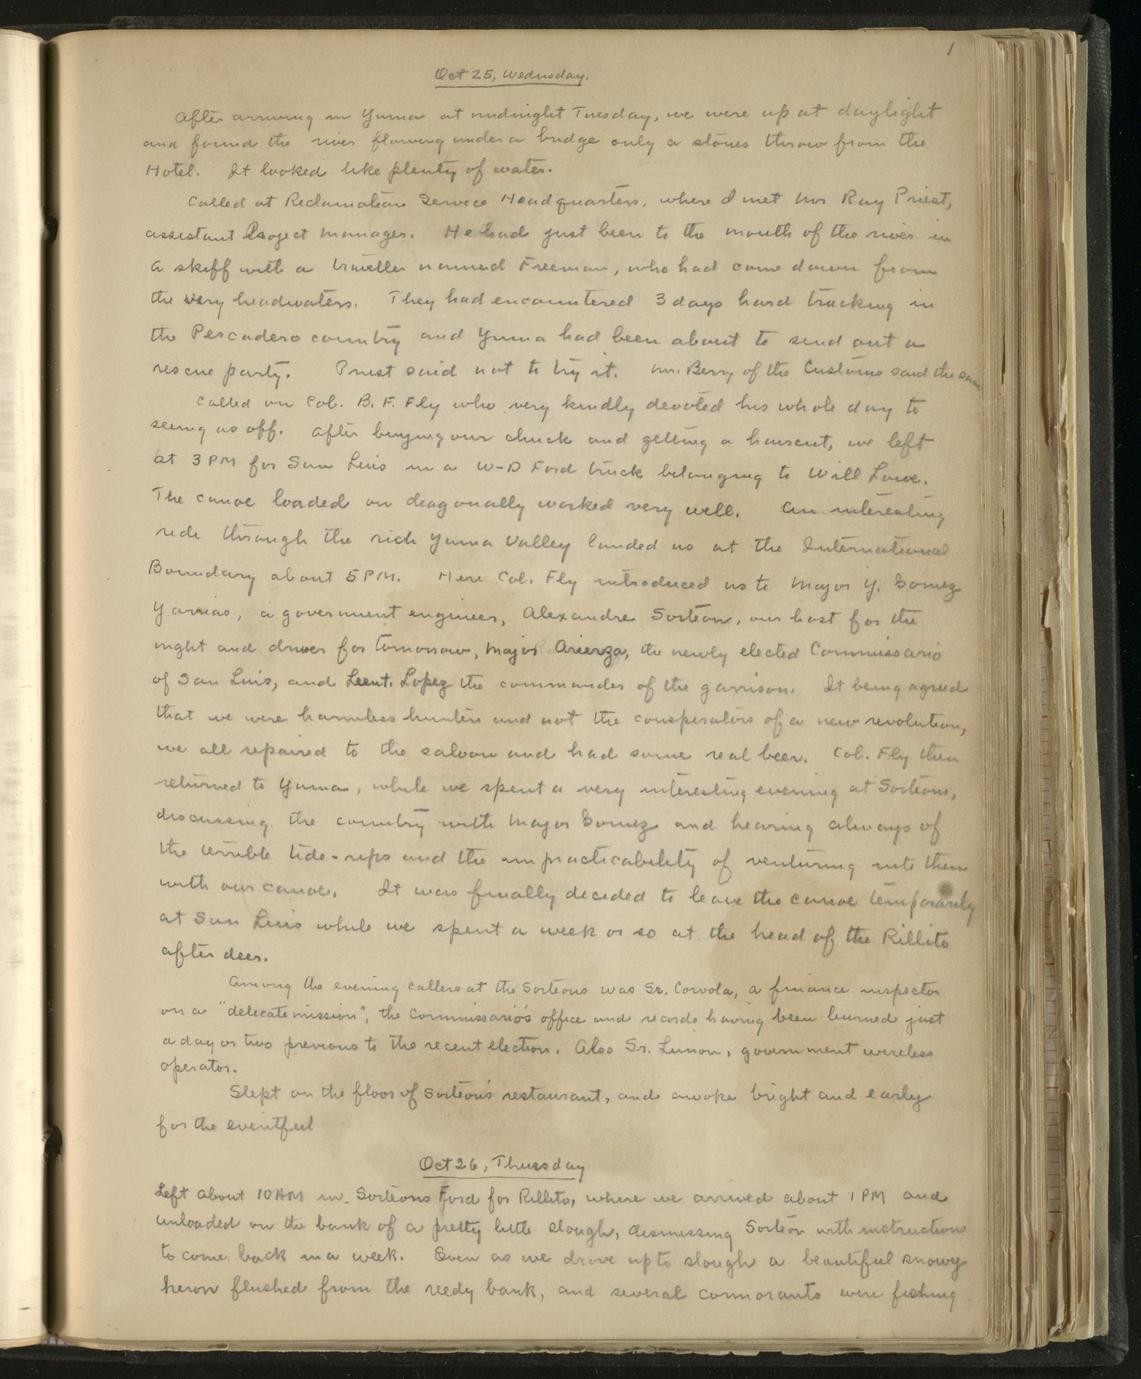 1
Oct 25, Wednesday.
After arriving in Yuma at midnight Tuesday, we were up at daylight
and found the river flowing under a bridge only a stones throw from the
Hotel. It looked like plenty of water.
Called at Reclamation Service Headquarters, where I met Mr Ray Priest,
assistant Project Manager. He had just been to the mouth of the river in
a skiff with a traveller named Freeman, who had come down from
the very headwaters. They had encountered 3 days hard tracking in
the Pescadero country and Yuma had been about to send out a
rescue party. Priest said not to try it. Mr. Berry of the Customs said the same
Called on Col. B. F. Fly who very kindly devoted his whole day to
seeing us off. After buying our chuck and getting a haircut, we left
at 3 PM for San Luis in a W-D Ford truck belonging to Will Lowe.
The canoe loaded on diagonally worked very well. An interesting
ride through the rich Yuma Valley landed us at the International
Boundary about 5 PM. Here Col. Fly introduced us to Major Y. Gomez
Yarnias, a government engineer, Alexandre Sorteon, our host for the
night and driver for tomorrow, Major Arienza, the newly elected Commissario
of San Luis, and Leut. Lopez the commander of the garrison. It being agreed
that we were harmless hunters and not the conspirators of a new revolution,
we all repaired to the saloon and had some real beer. Col. Fly then
returned to Yuma, while we spent a very interesting evening at Sorteons,
discussing the country with Major Gomez and hearing always of
the terrible tide-rips and the impracticability of venturing into them
with our canoe. It was finally decided to leave the canoe temporarily
at San Luis while we spent a week or so at the head of the Rillito
after deer.
Among the evening callers at the Sorteons was Sr. Corvola, a finance inspector
on a "delicate mission", the Commissario's office and records having been burned just
a day or two previous to the recent election. Also Sr. Lunon, government wireless
operator.
Slept on the floor of Sorteon's restaurant, and awoke bright and early
for the eventful
Oct 26, Thursday
Left about 10 AM in Sorteons Ford for Rillito, where we arrived about 1 PM and
unloaded on the bank of a pretty little slough, dismissing Sorteon with instructions
to come back in a week. Even as we drove up to slough a beautiful snowy
heron flushed from the reedy bank, and several cormorants were fishing